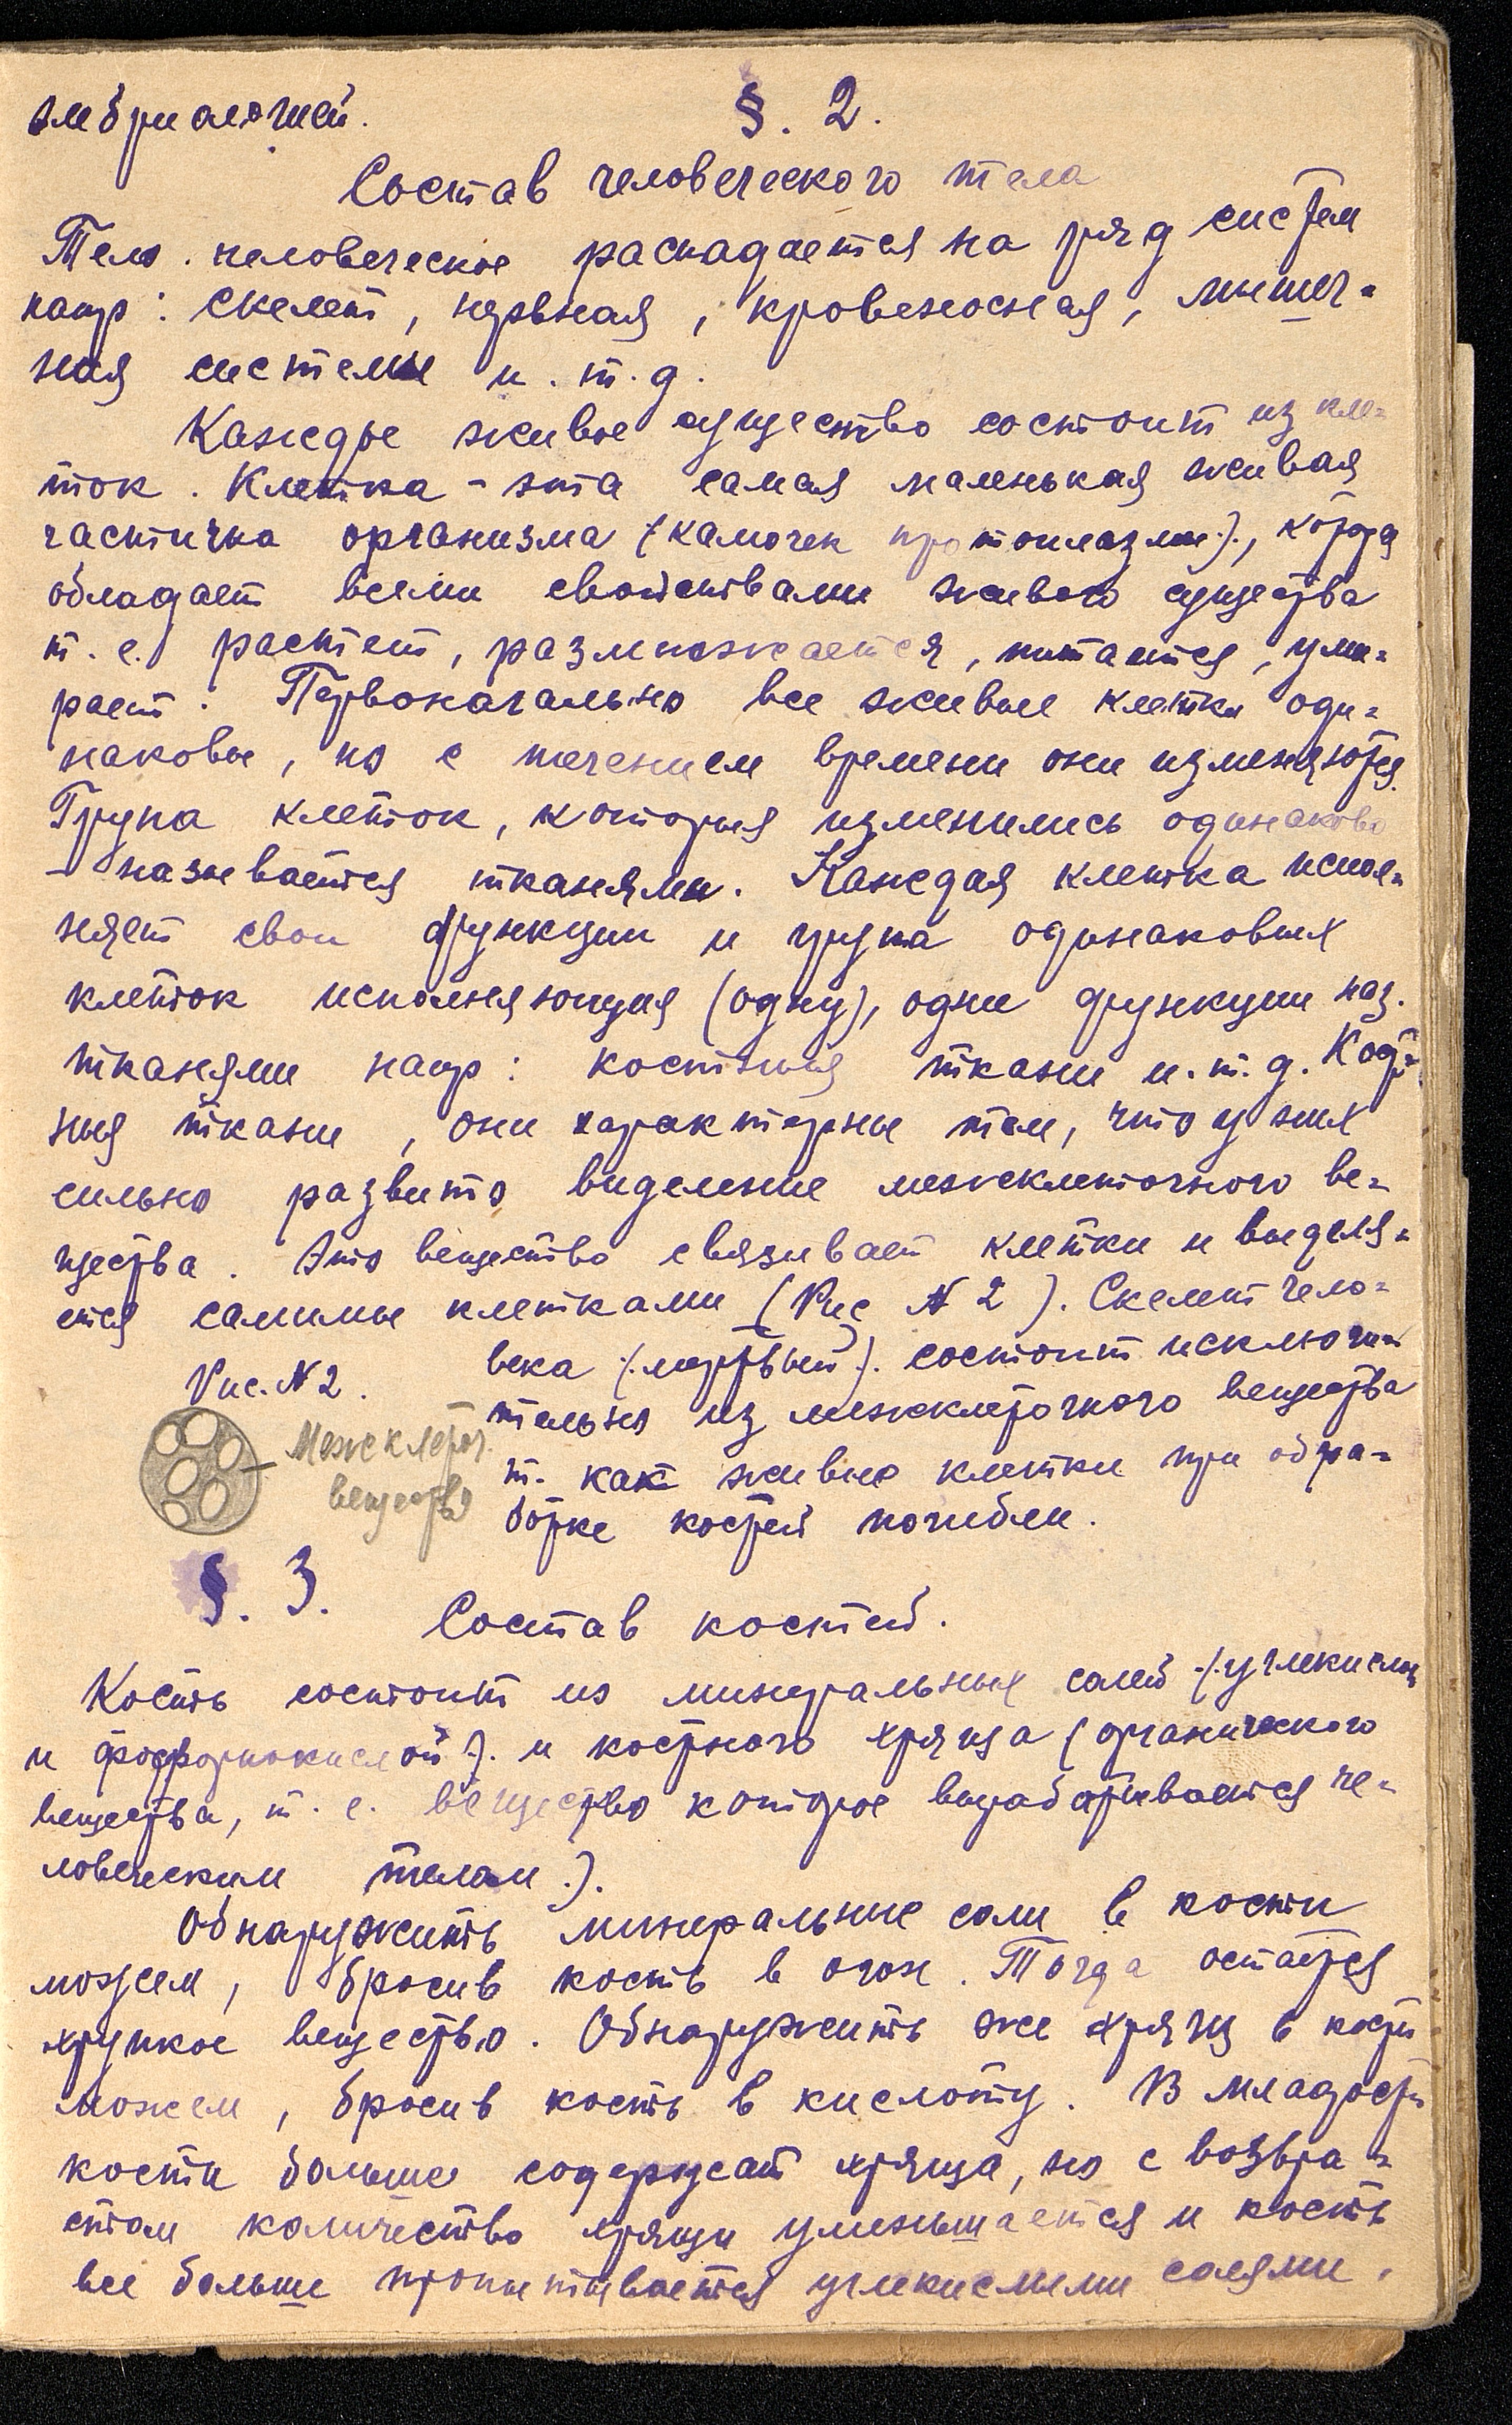 эмбриологией.
§. 2.
Состав человеческого тела
Тело человеческое распадается на ряд систем
напр: скелет, нервная, кровеносная, мышеч-
ная системы и.т.д.
Каждое живое существо состоит из кле-
ток. Клетка - эта самая маленькая живая
частичка организма (камочек протоплазмы), котор.
обладает всеми свойствами живого существа
т.е. растет, размножается, питается, уми-
рает. Первоначально все живые клетки оди-
наковы, но с течением времени они изменяются.
Група клеток, которыя изменились одинаково
- называется тканями. Каждая клетка испол-
няет свои функции и група одинаковых
клеток исполняющия (одну), одни функции наз.
тканями напр: костныя ткани и.т.д. Кост-
ныя ткани, они характерны тем, что у них
сильно развито виделение межеклеточного ве-
щества. Это вещество связивает клетки и выделя-
ется самимы клетками (Рис № 2). Скелет чело-
века (мертвый). состоит исключи-
тельно из межклеточного вещества
т. как живые клетки при обра-
ботке костей погибли.
Рис. № 2.
Межеклеточ.
вещество
§. 3.
Состав костей.
Кость состоит из минеральных солей (углекислой
и фосфорнокислой). и костного хряща (органического
вещества, т.е. вещество которое вырабатывается че-
ловеческим телом).
Обнаружить минеральные соли в кости
можем, бросив кость в огон. Тогда остается
хрупкое вещество. Обнаружить же хрящ в кости
можем, бросив кость в кислоту. В младости
кости больше содержат хряща, но с возвра-
стом количество хряща уменьшается и кость
все больше пропитывается углекислыми солями.